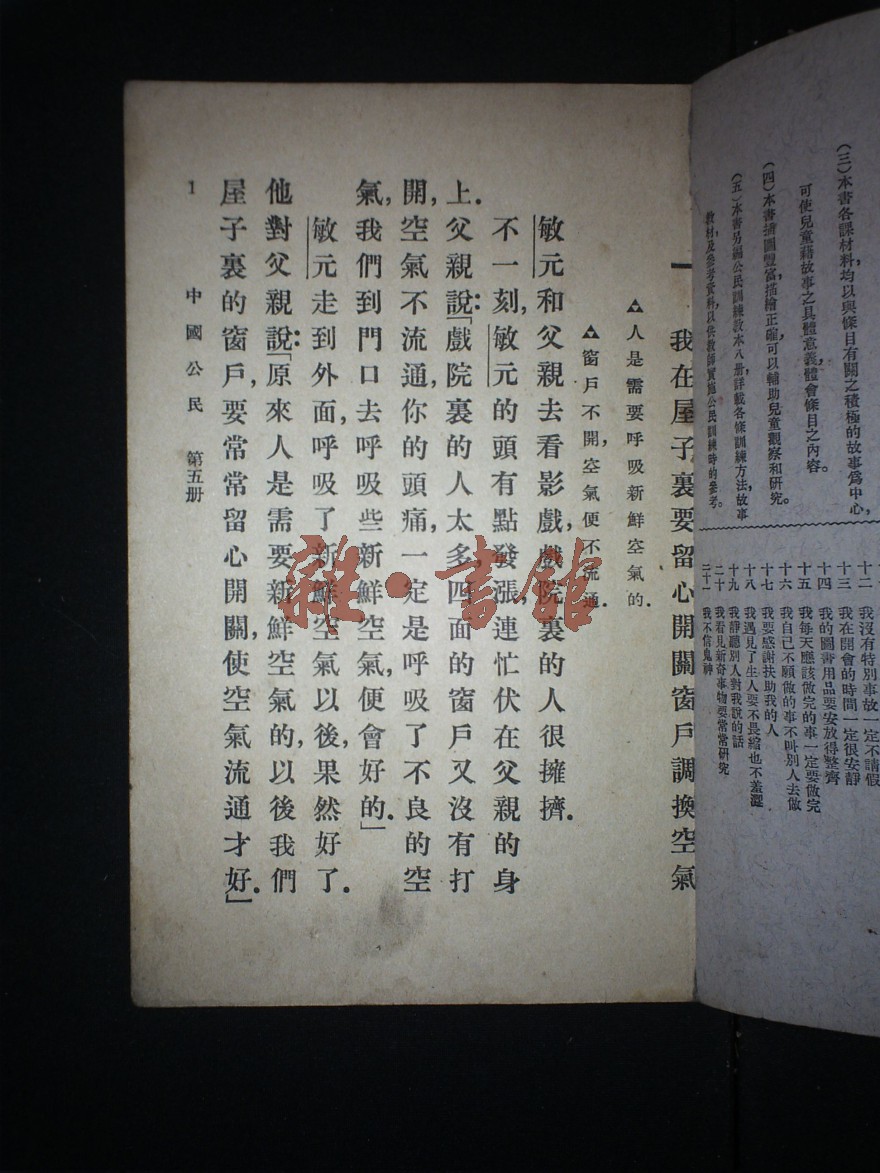 (三)本書各課材料,均以與條目有關之積極的故事爲中心,
可使兒童藉故事之具體意義,體會條目之內容。
(四)本書插圖豐富,描繪正確,可以輔助兒童觀察和研究。
(五)本書另編公民訓練教本八册,詳載各條訓練方法,故事
教材,及參考資料,以供教師實施公民訓練時的參考。
十二 我沒有特別事故一定不請假
十三 我在開會的時間一定很安靜
十四 我的圖書用品要安放得整齊
十五 我每天應該做完的事一定要做完
十六 我自己不願做的事不叫別人去做
十七 我要感謝扶助我的人
十八 我遇見了生人要不畏縮也不羞澀
十九 我靜聽別人對我說的話
二十 我看見新奇事物要常常研究
二十一 我不信鬼神
一 我在屋子裏要留心開關窗戶調換空氣
▲人是需要呼吸新鮮空氣的.
▲窗戶不開,空氣便不流通.
敏元和父親去看影戲,戲院裏的人很擁擠.
不一刻,敏元的頭有點發漲,連忙伏在父親的身
上.父親說:「戲院裏的人太多,四面的窗戶又沒有打
開,空氣不流通,你的頭痛,一定是呼吸了不良的空
氣,我們到門口去呼吸些新鮮空氣,便會好的.」
敏元走到外面,呼吸了新鮮空氣以後,果然好了.
他對父親說:「原來人是需要新鮮空氣的,以後我們
屋子裏的窗戶,要常常留心開關,使空氣流通才好.」
中國公民 第五册
1
雜·書館